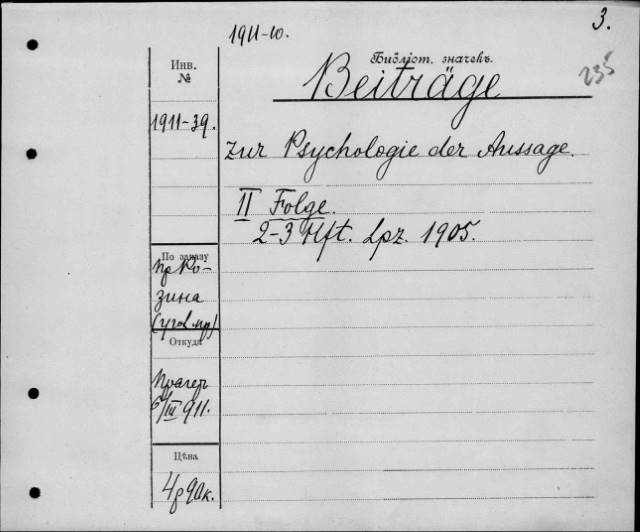 1911-10.
3.
Инв.
№
Библіот. значекъ.
235
Beiträge
1911-39.
zur Psychologie der Aussage.
II Folge.
2-3 Hft. Lpz. 1905.
По заказу
пр Ро-
зина
(угол. пр)
Откуда
Прагер
6/III 911.
Цѣна
4р 90к.